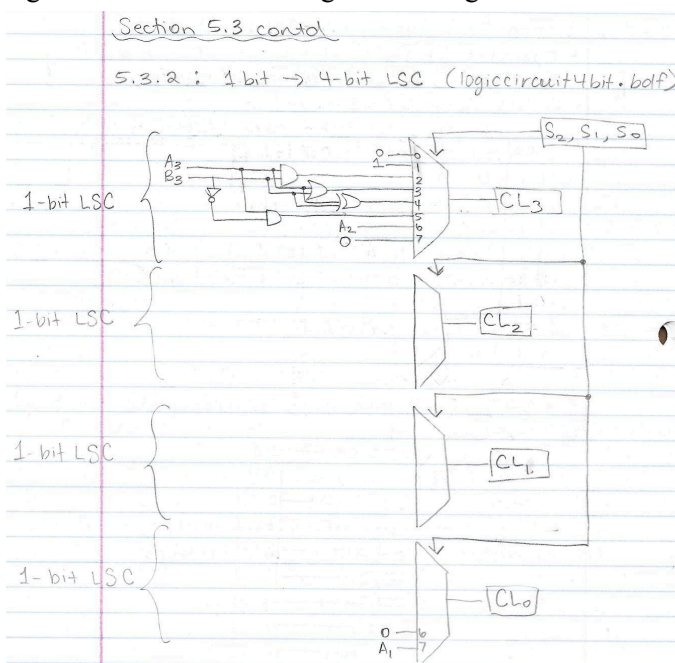 Section 5.3 contd
5.3.2 : 1 bit → 4-bit LSC (logiccircuit4bit.bdf)
S2, S1, S0
1-bit LSC
A3
B3
0
1
A2
0
0
1
2
3
4
5
6
7
CL3
1-bit LSC
CL2
1-bit LSC
CL1
1-bit LSC
0
A1
6
7
CL0